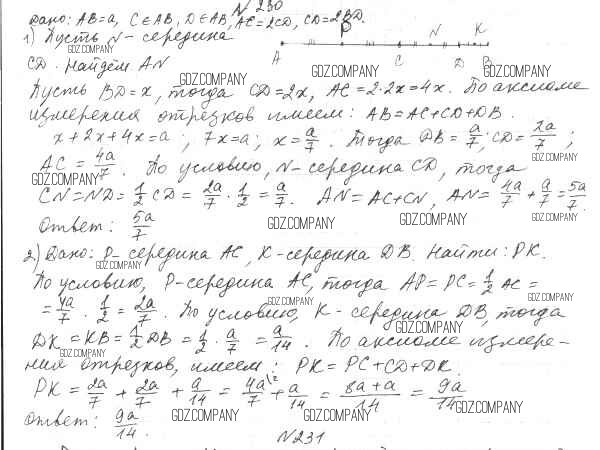 № 230
Дано: AB=a, C∈AB, D∈AB, AC=2CD, CD=2BD.
1) Пусть N - середина
GDZ.COMPANY
P N K
A C D B
CD. Найдём AN
GDZ.COMPANY GDZ.COMPANY GDZ.COMPANY
Пусть BD=x, тогда CD=2x, AC=2·2x=4x. По аксиоме
измерения отрезков имеем: AB=AC+CD+DB.
GDZ.COMPANY
x+2x+4x=a; 7x=a; x=a/7. Тогда DB=a/7; CD=2a/7;
AC=4a/7. По условию, N-середина CD, тогда
GDZ.COMPANY GDZ.COMPANY
CN=ND=1/2 CD=2a/7·1/2=a/7. AN=AC+CN, AN=4a/7+a/7=5a/7.
Ответ: 5a/7
GDZ.COMPANY GDZ.COMPANY GDZ.COMPANY
2) Дано: P-середина AC, K-середина DB. Найти: PK.
GDZ.COMPANY
По условию, P-середина AC, тогда AP=PC=1/2 AC=
GDZ.COMPANY GDZ.COMPANY
=4a/7·1/2=2a/7. По условию, K-середина DB, тогда
GDZ.COMPANY
DK=KB=1/2 DB=1/2·a/7=a/14. По аксиоме измере-
GDZ.COMPANY GDZ.COMPANY
ния отрезков, имеем: PK=PC+CD+DK.
PK=2a/7+2a/7+a/14=4a/7\2+a/14=8a+a/14=9a/14
GDZ.COMPANY
Ответ: 9a/14.
GDZ.COMPANY GDZ.COMPANY
№231